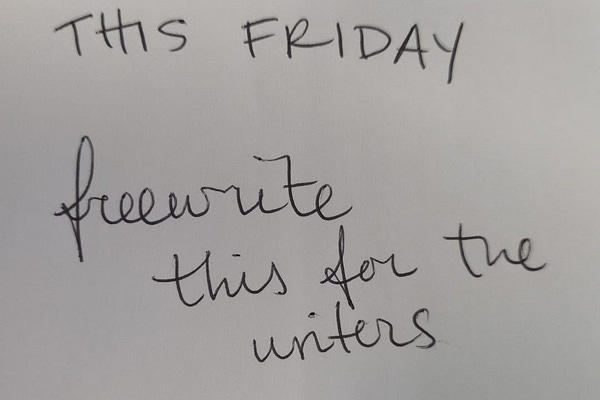 THIS FRIDAY
freewrite
this for the
writers